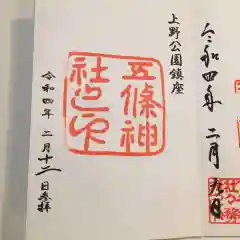 令和四年 二月
上野公園鎮座
五條神
社之印
令和四年 二月十二日参拝